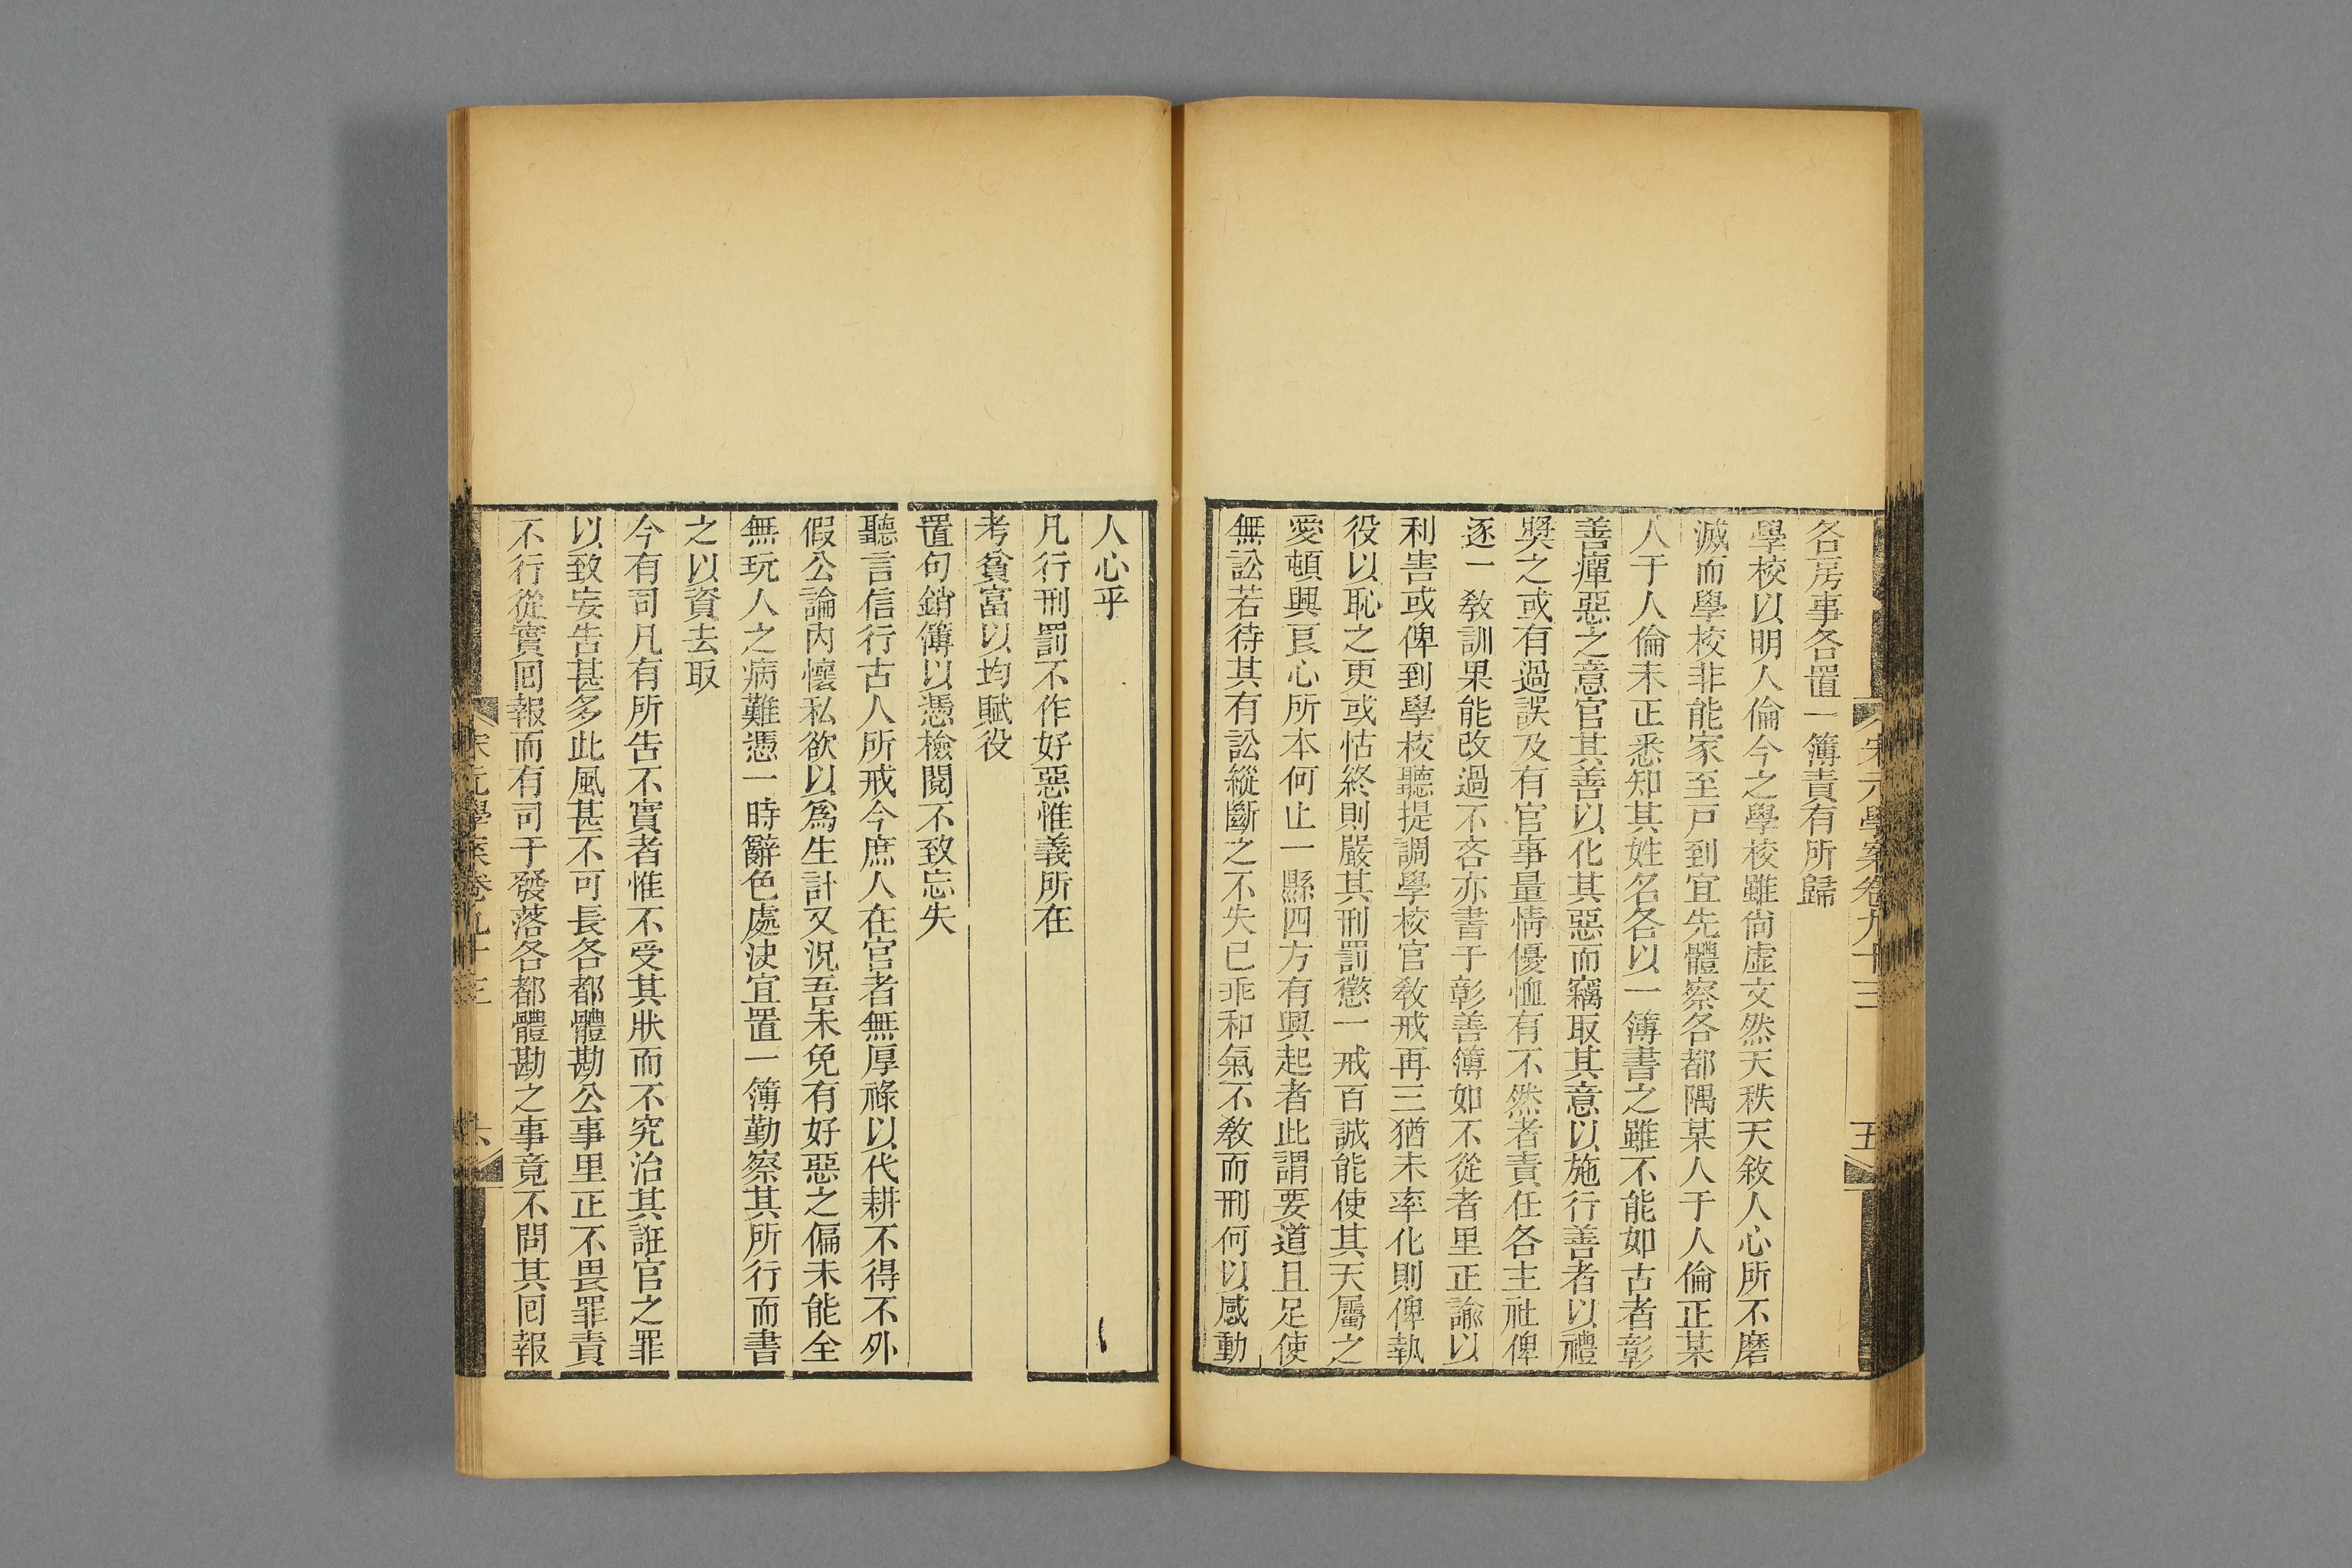 宋元學案卷九十三
五
各房事各置一簿責有所歸
學校以明人倫今之學校雖尙虛文然天秩天敘人心所不磨
滅而學校非能家至戸到宜先體察各都隅某人于人倫正某
人于人倫未正悉知其姓名各以一簿書之雖不能如古者彰
善癉惡之意官其善以化其惡而竊取其意以施行善者以禮
獎之或有過誤及有官事量情優恤有不然者責任各主社俾
逐一敎訓果能改過不吝亦書于彰善簿如不從者里正諭以
利害或俾到學校聽提調學校官敎戒再三猶未率化則俾執
役以恥之更或怙終則嚴其刑罰懲一戒百誠能使其天屬之
愛頓興良心所本何止一縣四方有興起者此謂要道且足使
無訟若待其有訟縱斷之不失已乖和氣不敎而刑何以感動
人心乎
凡行刑罰不作好惡惟義所在
考貧富以均賦役
置句銷簿以憑檢閱不致忘失
聽言信行古人所戒今庶人在官者無厚祿以代耕不得不外
假公論內懷私欲以爲生計又況吾未免有好惡之偏未能全
無玩人之病難憑一時辭色處決宜置一簿勤察其所行而書
之以資去取
今有司凡有所告不實者惟不受其狀而不究治其誑官之罪
以致妄告甚多此風甚不可長各都體勘公事里正不畏罪責
不行從實囘報而有司于發落各都體勘之事竟不問其囘報
宋元學案卷九十三
六